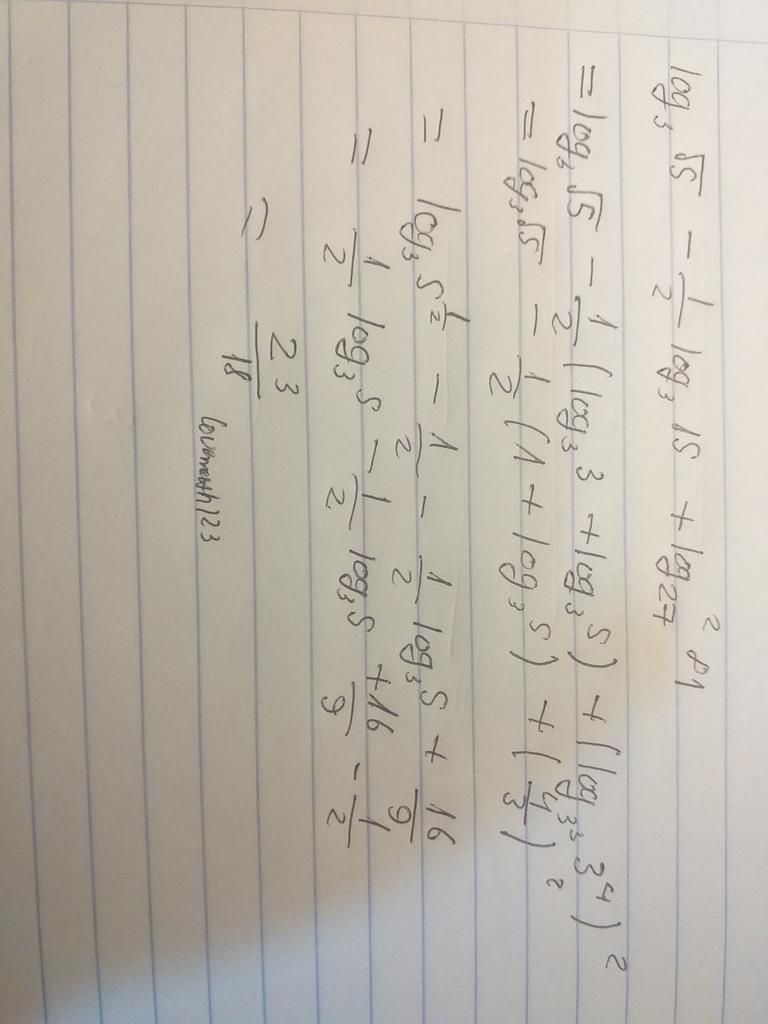 log₃ √5 − 1/2 log₃ 15 + log₂₇² 81
= log₃ √5 − 1/2 (log₃ 3 + log₃ 5) + (log₃³ 3⁴)²
= log₃ √5 − 1/2 (1 + log₃ 5) + (4/3)²
= log₃ 5^(1/2) − 1/2 − 1/2 log₃ 5 + 16/9
= 1/2 log₃ 5 − 1/2 log₃ 5 + 16/9 − 1/2
= 23/18
lovemath123